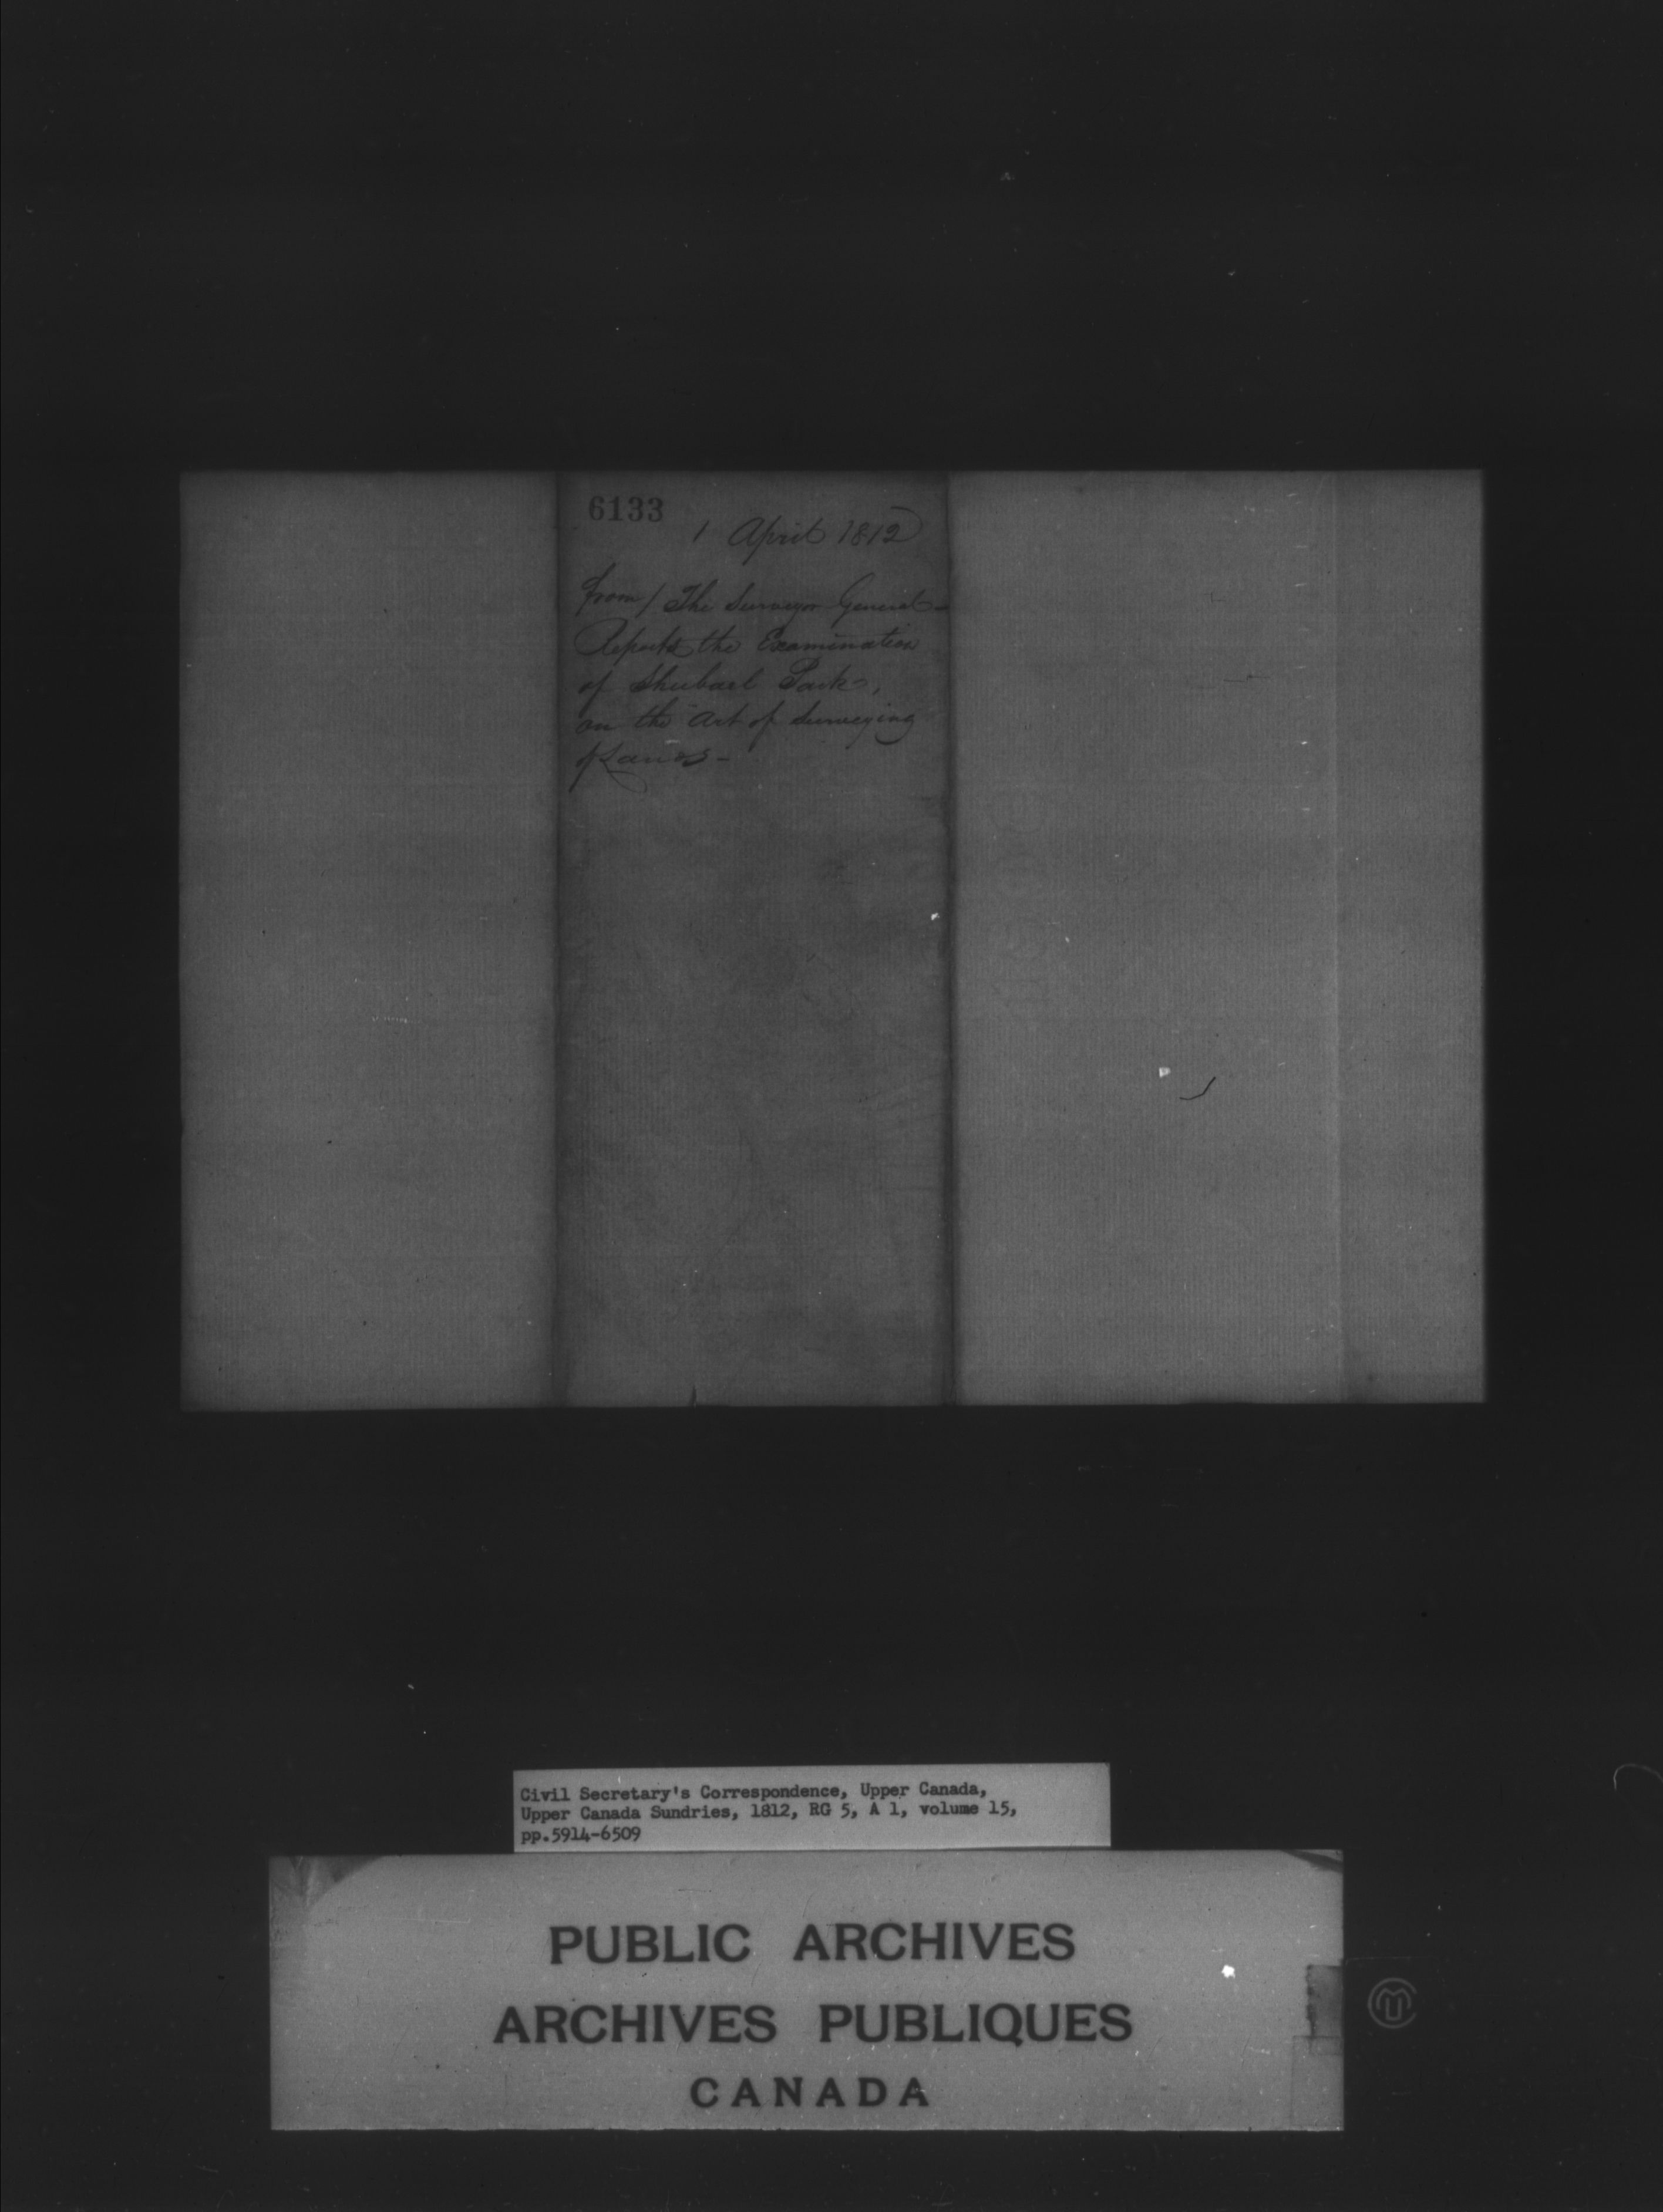 6133
1 April 1812
from / The Surveyor General -
Reports the Examination
of Shubael Park,
on the Art of Surveying
of Lands -
Civil Secretary's Correspondence, Upper Canada,
Upper Canada Sundries, 1812, RG 5, A 1, volume 15,
pp.5914-6509
PUBLIC ARCHIVES
ARCHIVES PUBLIQUES
CANADA